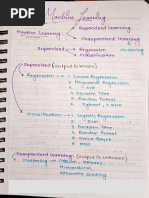 Machine Learning
Machine Learning
Supervised Learning
Unsupervised Learning
Clustering
Supervised
Regression
Classification
Supervised (output is known)
Regression → 1. Linear Regression
2. Polynomial Regression
3. SVR
4. Decision Tree
5. Random Forest
Classification → 1.
2.
3. Decision Tree
4. Random Forest
5. Naive
6. KNN
Unsupervised learning: (output is unknown)
Clustering → KMeans,
Hierarchical,
Silhouette Scoring